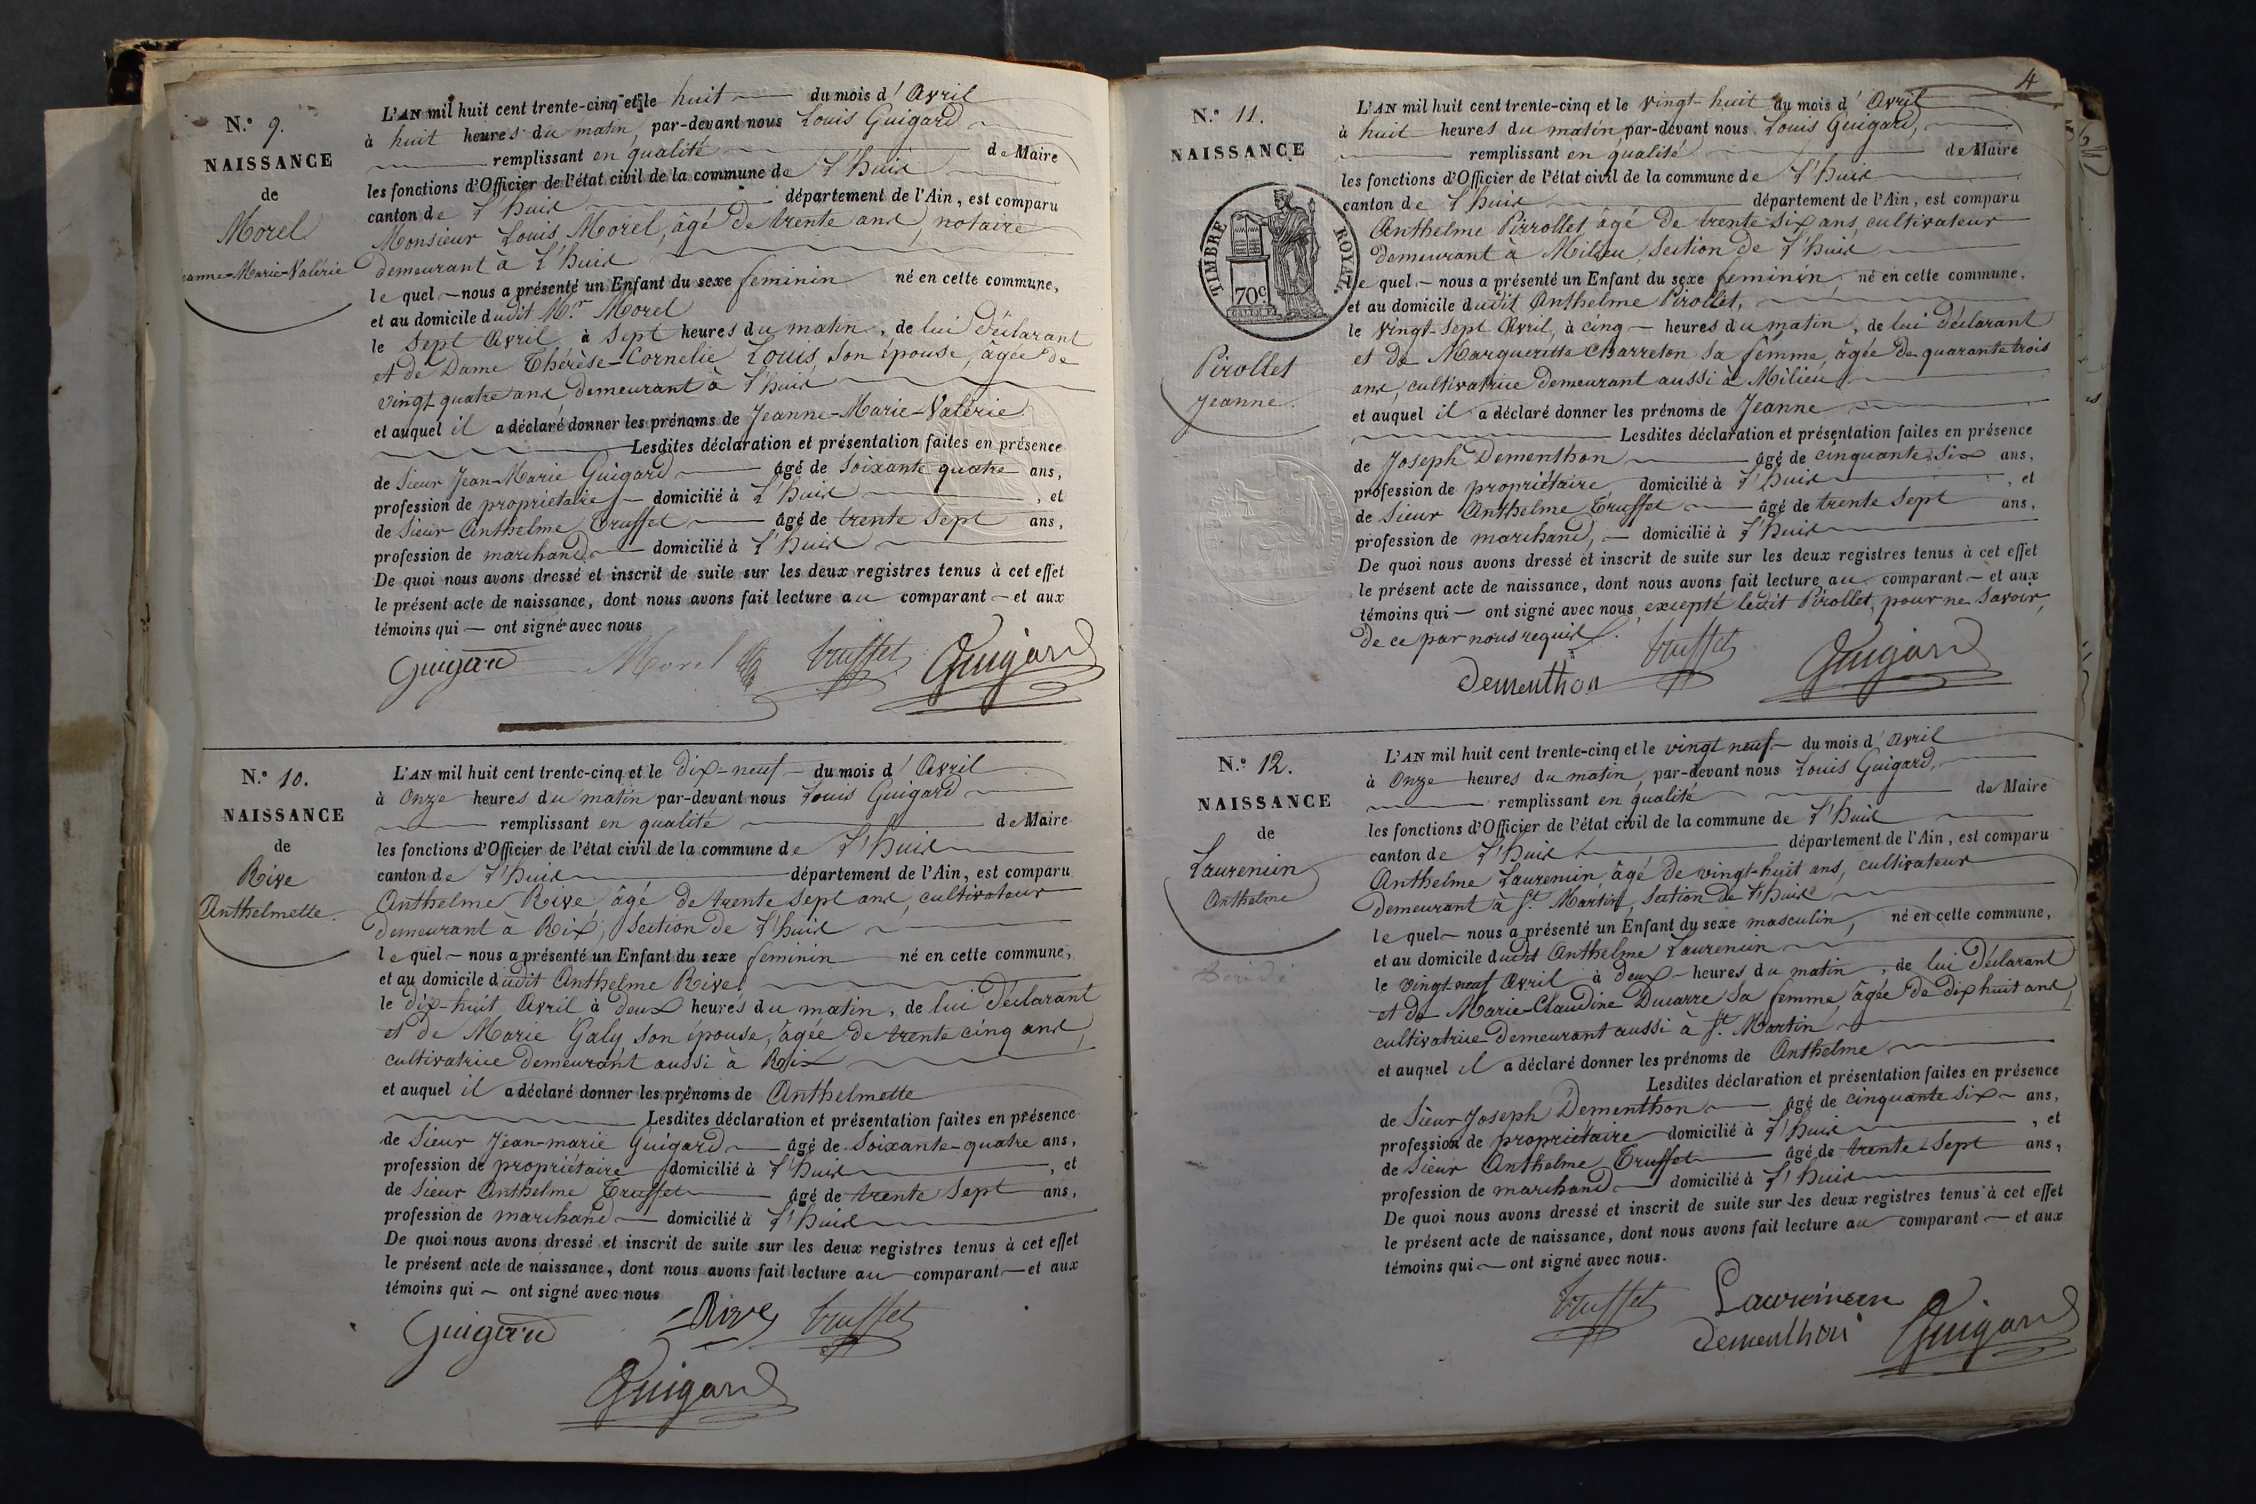 N.º 9.
NAISSANCE
de
Morel
Jeanne-Marie-Valérie
L'AN mil huit cent trente-cinq et le huit du mois d'Avril
à huit heures du matin, par-devant nous Louis Guigard
remplissant en qualité de Maire
les fonctions d'Officier de l'état civil de la commune de L'huis
canton de L'huis département de l'Ain, est comparu
Monsieur Louis Morel, âgé de trente ans, notaire
demeurant à L'huis
lequel nous a présenté un Enfant du sexe feminin né en cette commune,
et au domicile dudit Mr Morel
le sept Avril à sept heures du matin, de lui déclarant
et de Dame Thérèse-Cornelie Louis, son épouse, âgée de
vingt quatre ans demeurant à L'huis
et auquel il a déclaré donner les prénoms de Jeanne-Marie-Valérie
Lesdites déclaration et présentation faites en présence
de Sieur Jean-Marie Guigard âgé de soixante quatre ans,
profession de propriétaire domicilié à L'huis, et
de Sieur Anthelme Truffet âgé de trente sept ans,
profession de marchand domicilié à L'huis
De quoi nous avons dressé et inscrit de suite sur les deux registres tenus à cet effet
le présent acte de naissance, dont nous avons fait lecture au comparant et aux
témoins qui ont signé avec nous
Guigard Morel truffet Guigard
N.º 10.
NAISSANCE
de
Rive
Anthelmette.
L'AN mil huit cent trente-cinq et le dix-neuf du mois d'Avril
à Onze heures du matin par-devant nous Louis Guigard
remplissant en qualité de Maire
les fonctions d'Officier de l'état civil de la commune de L'huis
canton de L'huis département de l'Ain, est comparu
Anthelme Rive âgé de trente sept ans, cultivateur
demeurant à Rix, section de L'huis
lequel nous a présenté un Enfant du sexe feminin né en cette commune,
et au domicile dudit Anthelme Rive,
le dix-huit Avril à deux heures du matin, de lui déclarant
et de Marie Galy son épouse, âgée de trente cinq ans,
cultivatrice demeurant aussi à Rix
et auquel il a déclaré donner les prénoms de Anthelmette
Lesdites déclaration et présentation faites en présence
de Sieur Jean-marie Guigard âgé de soixante-quatre ans,
profession de propriétaire domicilié à L'huis, et
de Sieur Anthelme Truffet âgé de trente sept ans,
profession de marchand domicilié à L'huis
De quoi nous avons dressé et inscrit de suite sur les deux registres tenus à cet effet
le présent acte de naissance, dont nous avons fait lecture au comparant et aux
témoins qui ont signé avec nous
Guigard Rive truffet
Guigard
4
N.º 11.
NAISSANCE
TIMBRE ROYAL
70c
Pirollet
Jeanne.
L'AN mil huit cent trente-cinq et le vingt-huit du mois d'Avril
à huit heures du matin par-devant nous Louis Guigard,
remplissant en qualité de Maire
les fonctions d'Officier de l'état civil de la commune de L'huis
canton de L'huis département de l'Ain, est comparu
Anthelme Pirrollet âgé de trente six ans, cultivateur
demeurant à Milieu, section de L'huis
lequel nous a présenté un Enfant du sexe feminin, né en cette commune,
et au domicile dudit Anthelme Pirollet,
le vingt-sept Avril, à cinq heures du matin, de lui déclarant
et de Margueritte Charreton sa femme, âgée de quarante trois
ans, cultivatrice demeurant aussi à Milieu
et auquel il a déclaré donner les prénoms de Jeanne
Lesdites déclaration et présentation faites en présence
de Joseph Dementhon âgé de cinquante six ans,
profession de propriétaire domicilié à L'huis, et
de Sieur Anthelme Truffet âgé de trente sept ans,
profession de marchand, domicilié à L'huis
De quoi nous avons dressé et inscrit de suite sur les deux registres tenus à cet effet
le présent acte de naissance, dont nous avons fait lecture au comparant et aux
témoins qui ont signé avec nous excepté ledit Pirollet, pour ne savoir,
de ce par nous requis.
Dementhon truffet Guigard
N.º 12.
NAISSANCE
de
Laurencin
Anthelme
L'AN mil huit cent trente-cinq et le vingt neuf du mois d'Avril
à Onze heures du matin, par-devant nous Louis Guigard,
remplissant en qualité de Maire
les fonctions d'Officier de l'état civil de la commune de L'huis
canton de L'huis département de l'Ain, est comparu
Anthelme Laurencin âgé de vingt-huit ans, cultivateur
demeurant à St. Martin, section de L'huis
lequel nous a présenté un Enfant du sexe masculin, né en cette commune,
et au domicile dudit Anthelme Laurencin
le vingt neuf Avril à deux heures du matin, de lui déclarant
et de Marie-Claudine Ducarre sa femme, âgée de dix huit ans,
cultivatrice demeurant aussi à St. Martin
et auquel il a déclaré donner les prénoms de Anthelme
Lesdites déclaration et présentation faites en présence
de Sieur Joseph Dementhon âgé de cinquante six ans,
profession de propriétaire domicilié à L'huis, et
de Sieur Anthelme Truffet âgé de trente-sept ans,
profession de marchand domicilié à L'huis
De quoi nous avons dressé et inscrit de suite sur les deux registres tenus à cet effet
le présent acte de naissance, dont nous avons fait lecture au comparant et aux
témoins qui ont signé avec nous.
truffet Laurencin
Dementhon Guigard